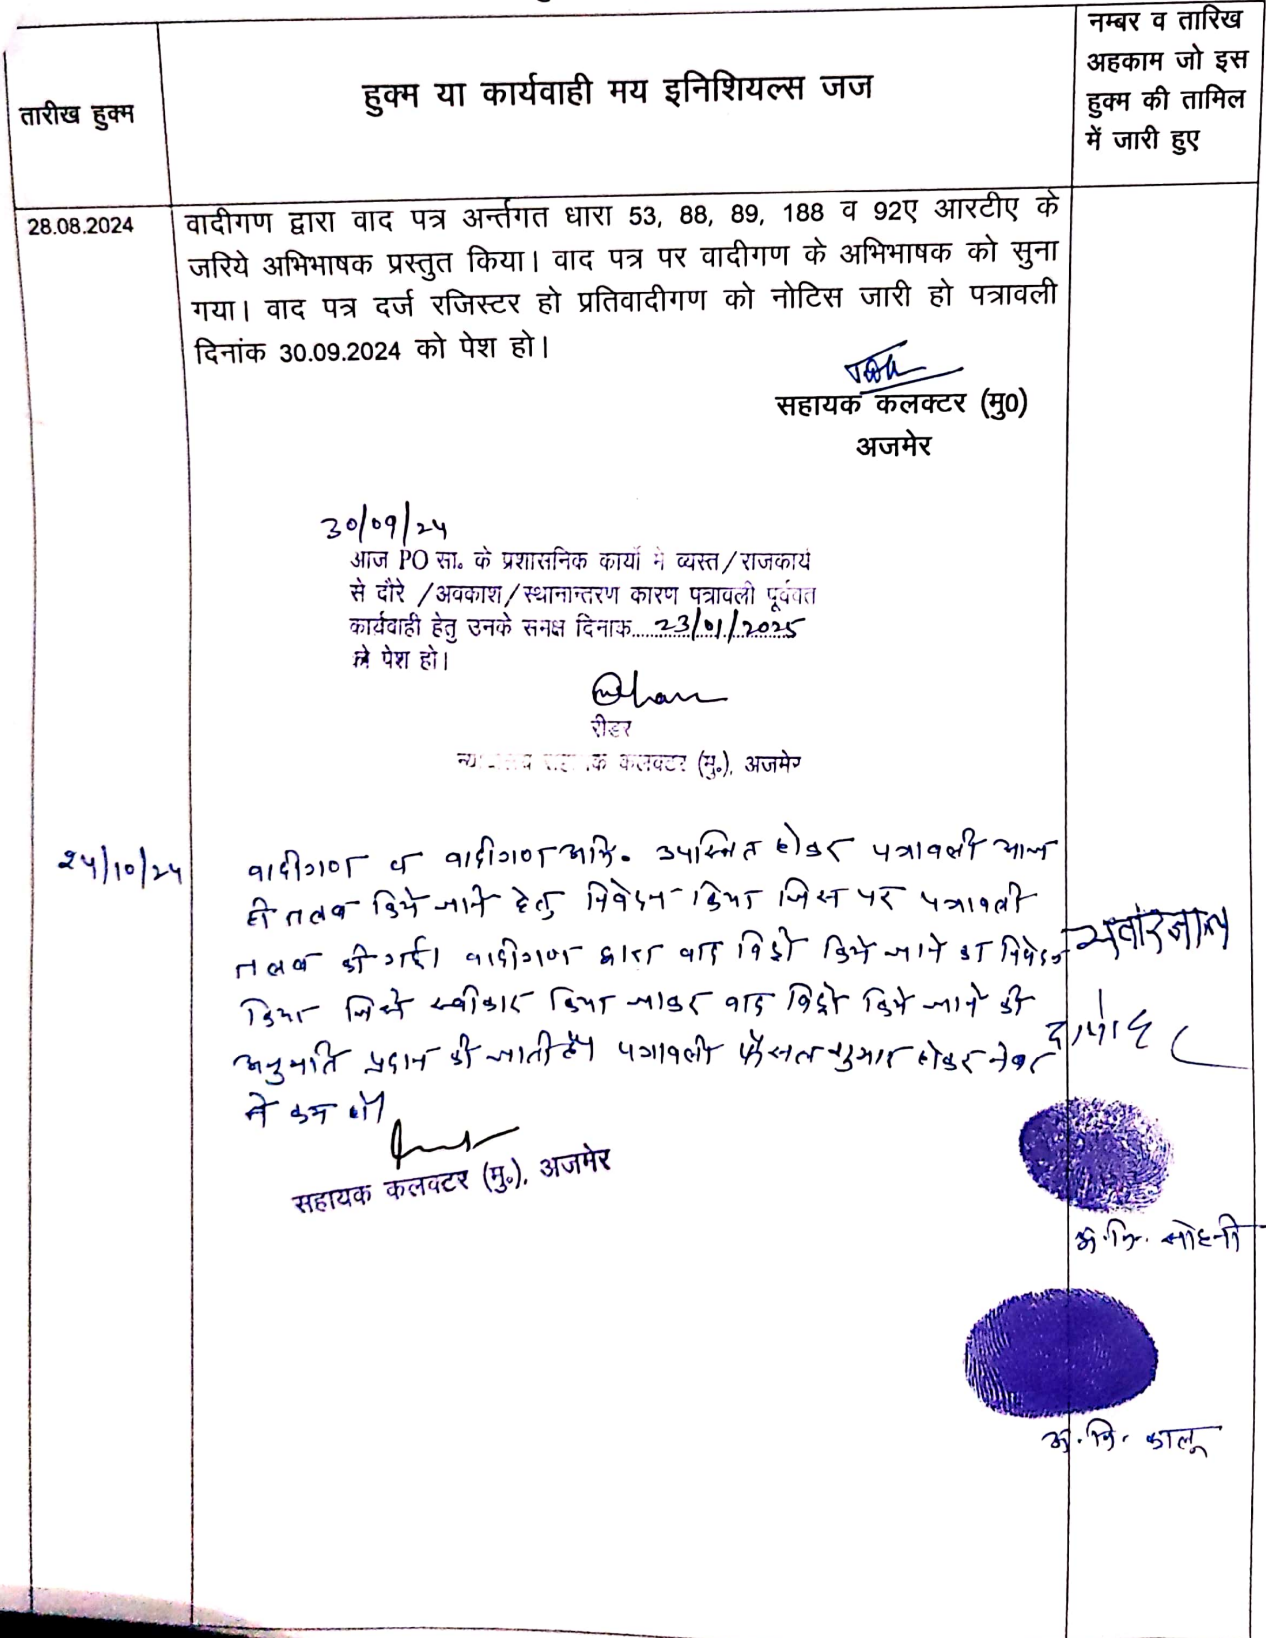 तारीख हुक्म
हुक्म या कार्यवाही मय इनिशियल्स जज
नम्बर व तारिख
अहकाम जो इस
हुक्म की तामिल
में जारी हुए
28.08.2024
वादीगण द्वारा वाद पत्र अर्न्तगत धारा 53, 88, 89, 188 व 92ए आरटीए के
जरिये अभिभाषक प्रस्तुत किया। वाद पत्र पर वादीगण के अभिभाषक को सुना
गया। वाद पत्र दर्ज रजिस्टर हो प्रतिवादीगण को नोटिस जारी हो पत्रावली
दिनांक 30.09.2024 को पेश हो।
सहायक कलक्टर (मु0)
अजमेर
30/09/24
आज PO सा. के प्रशासनिक कार्यो मे व्यस्त/राजकार्य
से दौरे /अवकाश/स्थानान्तरण कारण पत्रावली पूर्ववत
कार्यवाही हेतु उनके समक्ष दिनाक......23/01/2025
पेश हो।
रीडर
न्यायालय सहायक कलक्टर (मु.), अजमेर
24/10/24
वादीगण व वादीगण अभि. उपस्थित होकर पत्रावली आज
ही तलब किये जाने हेतु निवेदन किया जिस पर पत्रावली
तलब की गई। वादीगण द्वारा वाद विड्रो किये जाने का निवेदन
किया जिसे स्वीकार किया जाकर वाद विड्रो किये जाने की
अनुमति प्रदान की जाती है। पत्रावली फैसल शुमार होकर नम्बर
से कम हो।
सहायक कलक्टर (मु.), अजमेर
अ.नि. सोहनी
अ.नि. कालू